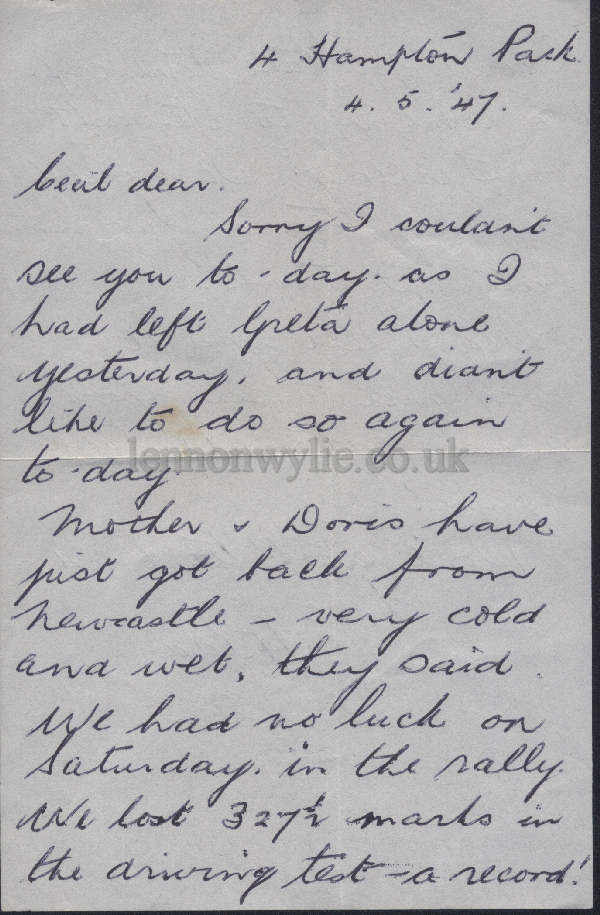 4 Hampton Park
4. 5. '47.
Cecil dear.
Sorry I couldn't
see you to-day. as I
had left Greta alone
yesterday, and didn't
like to do so again
to-day.
lennonwylie.co.uk
Mother & Doris have
just got back from
Newcastle – very cold
and wet, they said.
We had no luck on
Saturday. in the rally.
We lost 327½ marks in
the driving test – a record!